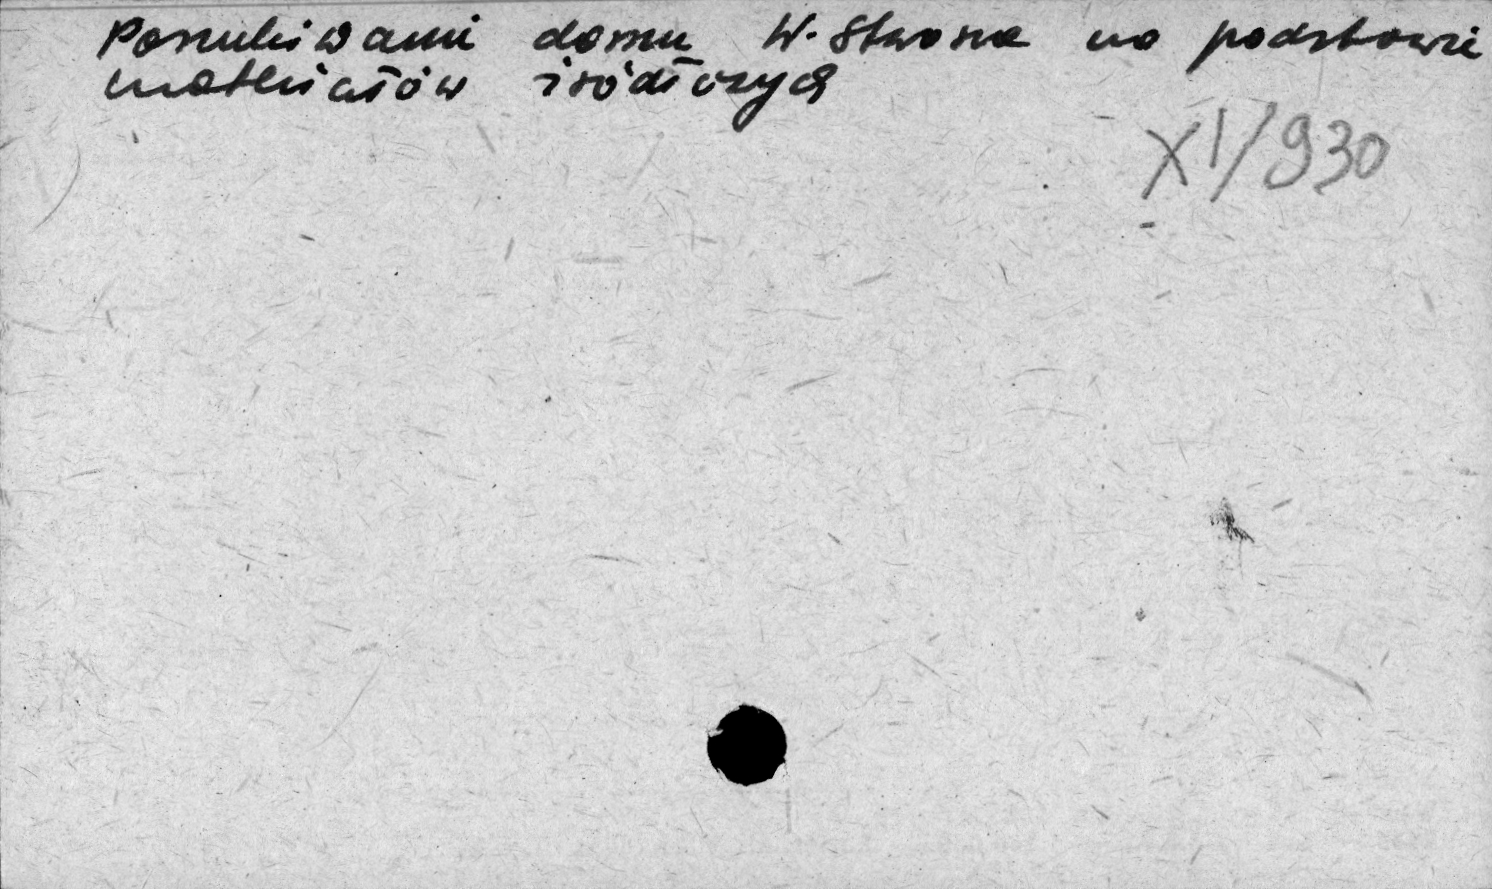 Poszukiwanie domu W. Stwosza na podstawie
materiałów źródłowych
XI/930